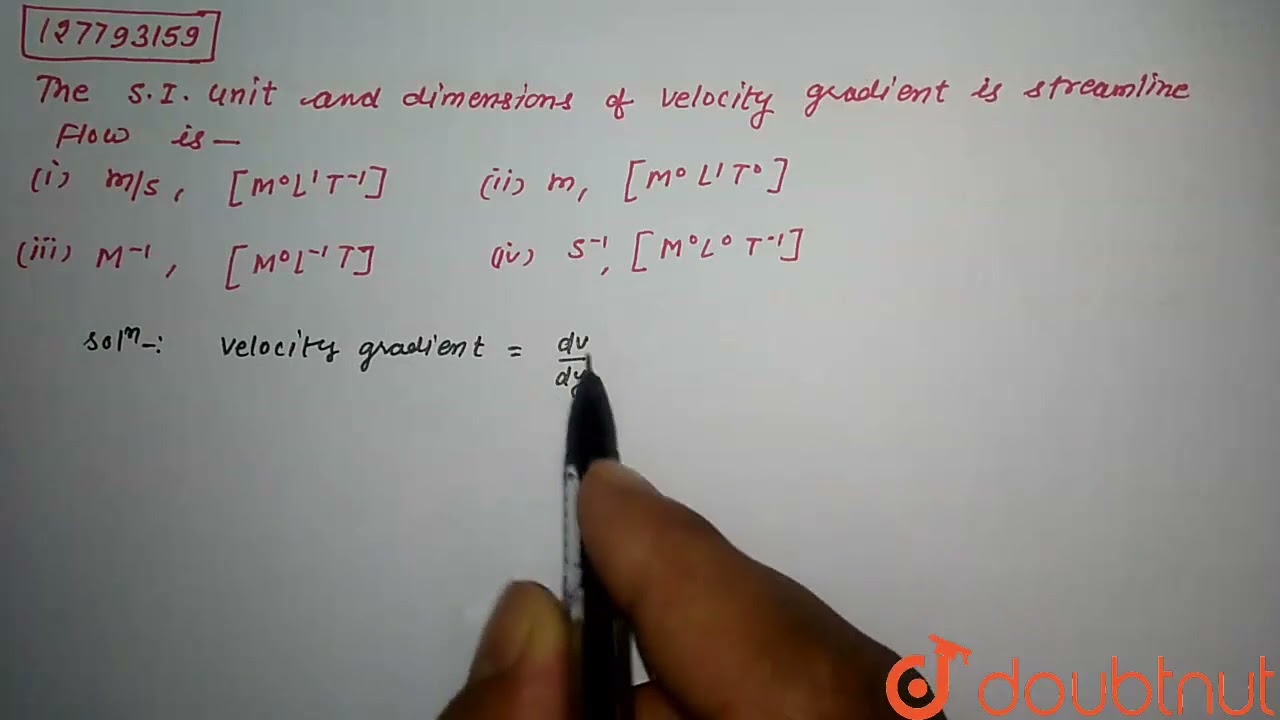 127793159
The S.I. unit and dimensions of velocity gradient is streamline
Flow is—
(i) m/s, [M⁰L¹T⁻¹] (ii) m, [M⁰L¹T⁰]
(iii) M⁻¹, [M⁰L⁻¹T] (iv) S⁻¹, [M⁰L⁰T⁻¹]
Solⁿ-: velocity gradient = dv/dy
doubtnut